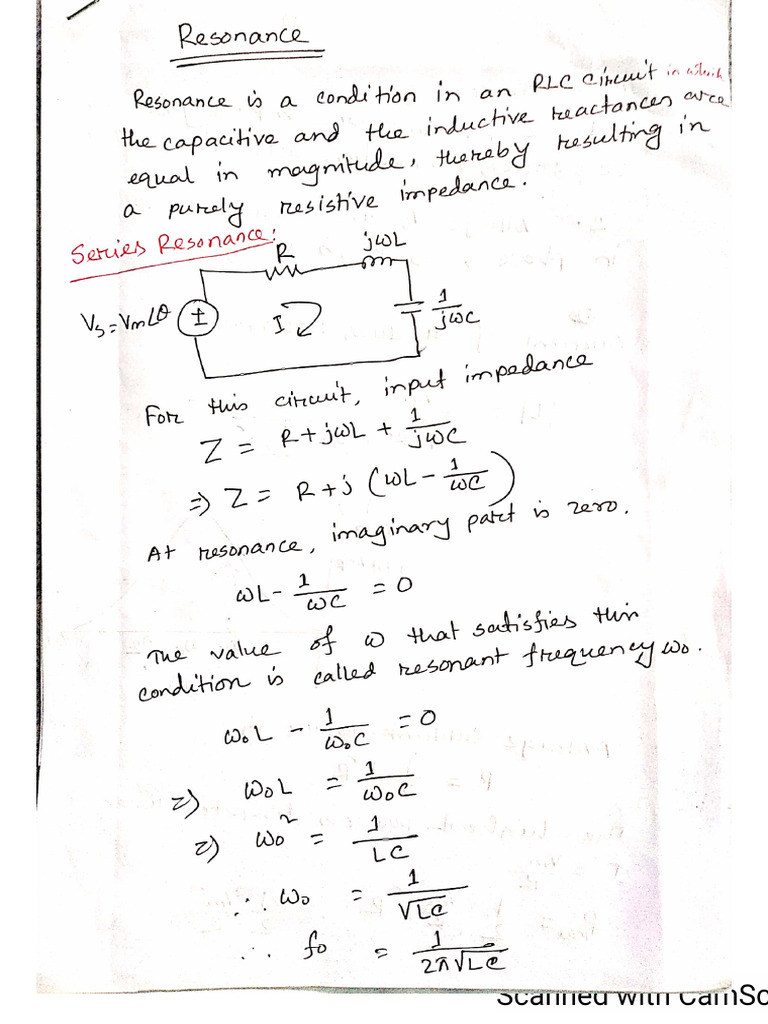 Resonance
Resonance is a condition in an RLC circuit in which
the capacitive and the inductive reactances are
equal in magnitude, thereby resulting in
a purely resistive impedance.
Series Resonance:
R
jωL
Vs = Vm∠θ
±
I
1/jωC
For this circuit, input impedance
Z = R + jωL + 1/jωC
⇒ Z = R + j (ωL - 1/ωC)
At resonance, imaginary part is zero.
ωL - 1/ωC = 0
The value of ω that satisfies this
condition is called resonant frequency ω₀.
ω₀L - 1/ω₀C = 0
⇒ ω₀L = 1/ω₀C
⇒ ω₀² = 1/LC
∴ ω₀ = 1/√LC
∴ f₀ = 1/2π√LC
Scanned with CamSc